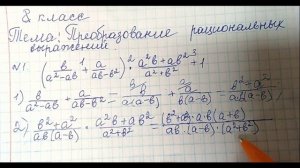 8 класс
Тема: Преобразование рациональных
выражений
№1 (b/(a²-ab) + a/(ab-b²)) · (a²b+ab²)/(a²+b²) + 1
1) b/(a²-ab) + a/(ab-b²) = b/(a(a-b)) + a/(b(a-b)) = (b²+a²)/
2) (b²+a²)/(ab(a-b)) · (a²b+ab²)/(a²+b²) = (b²+a²)·a·b(a+b)/(ab·(a-b)·(a²+b²))